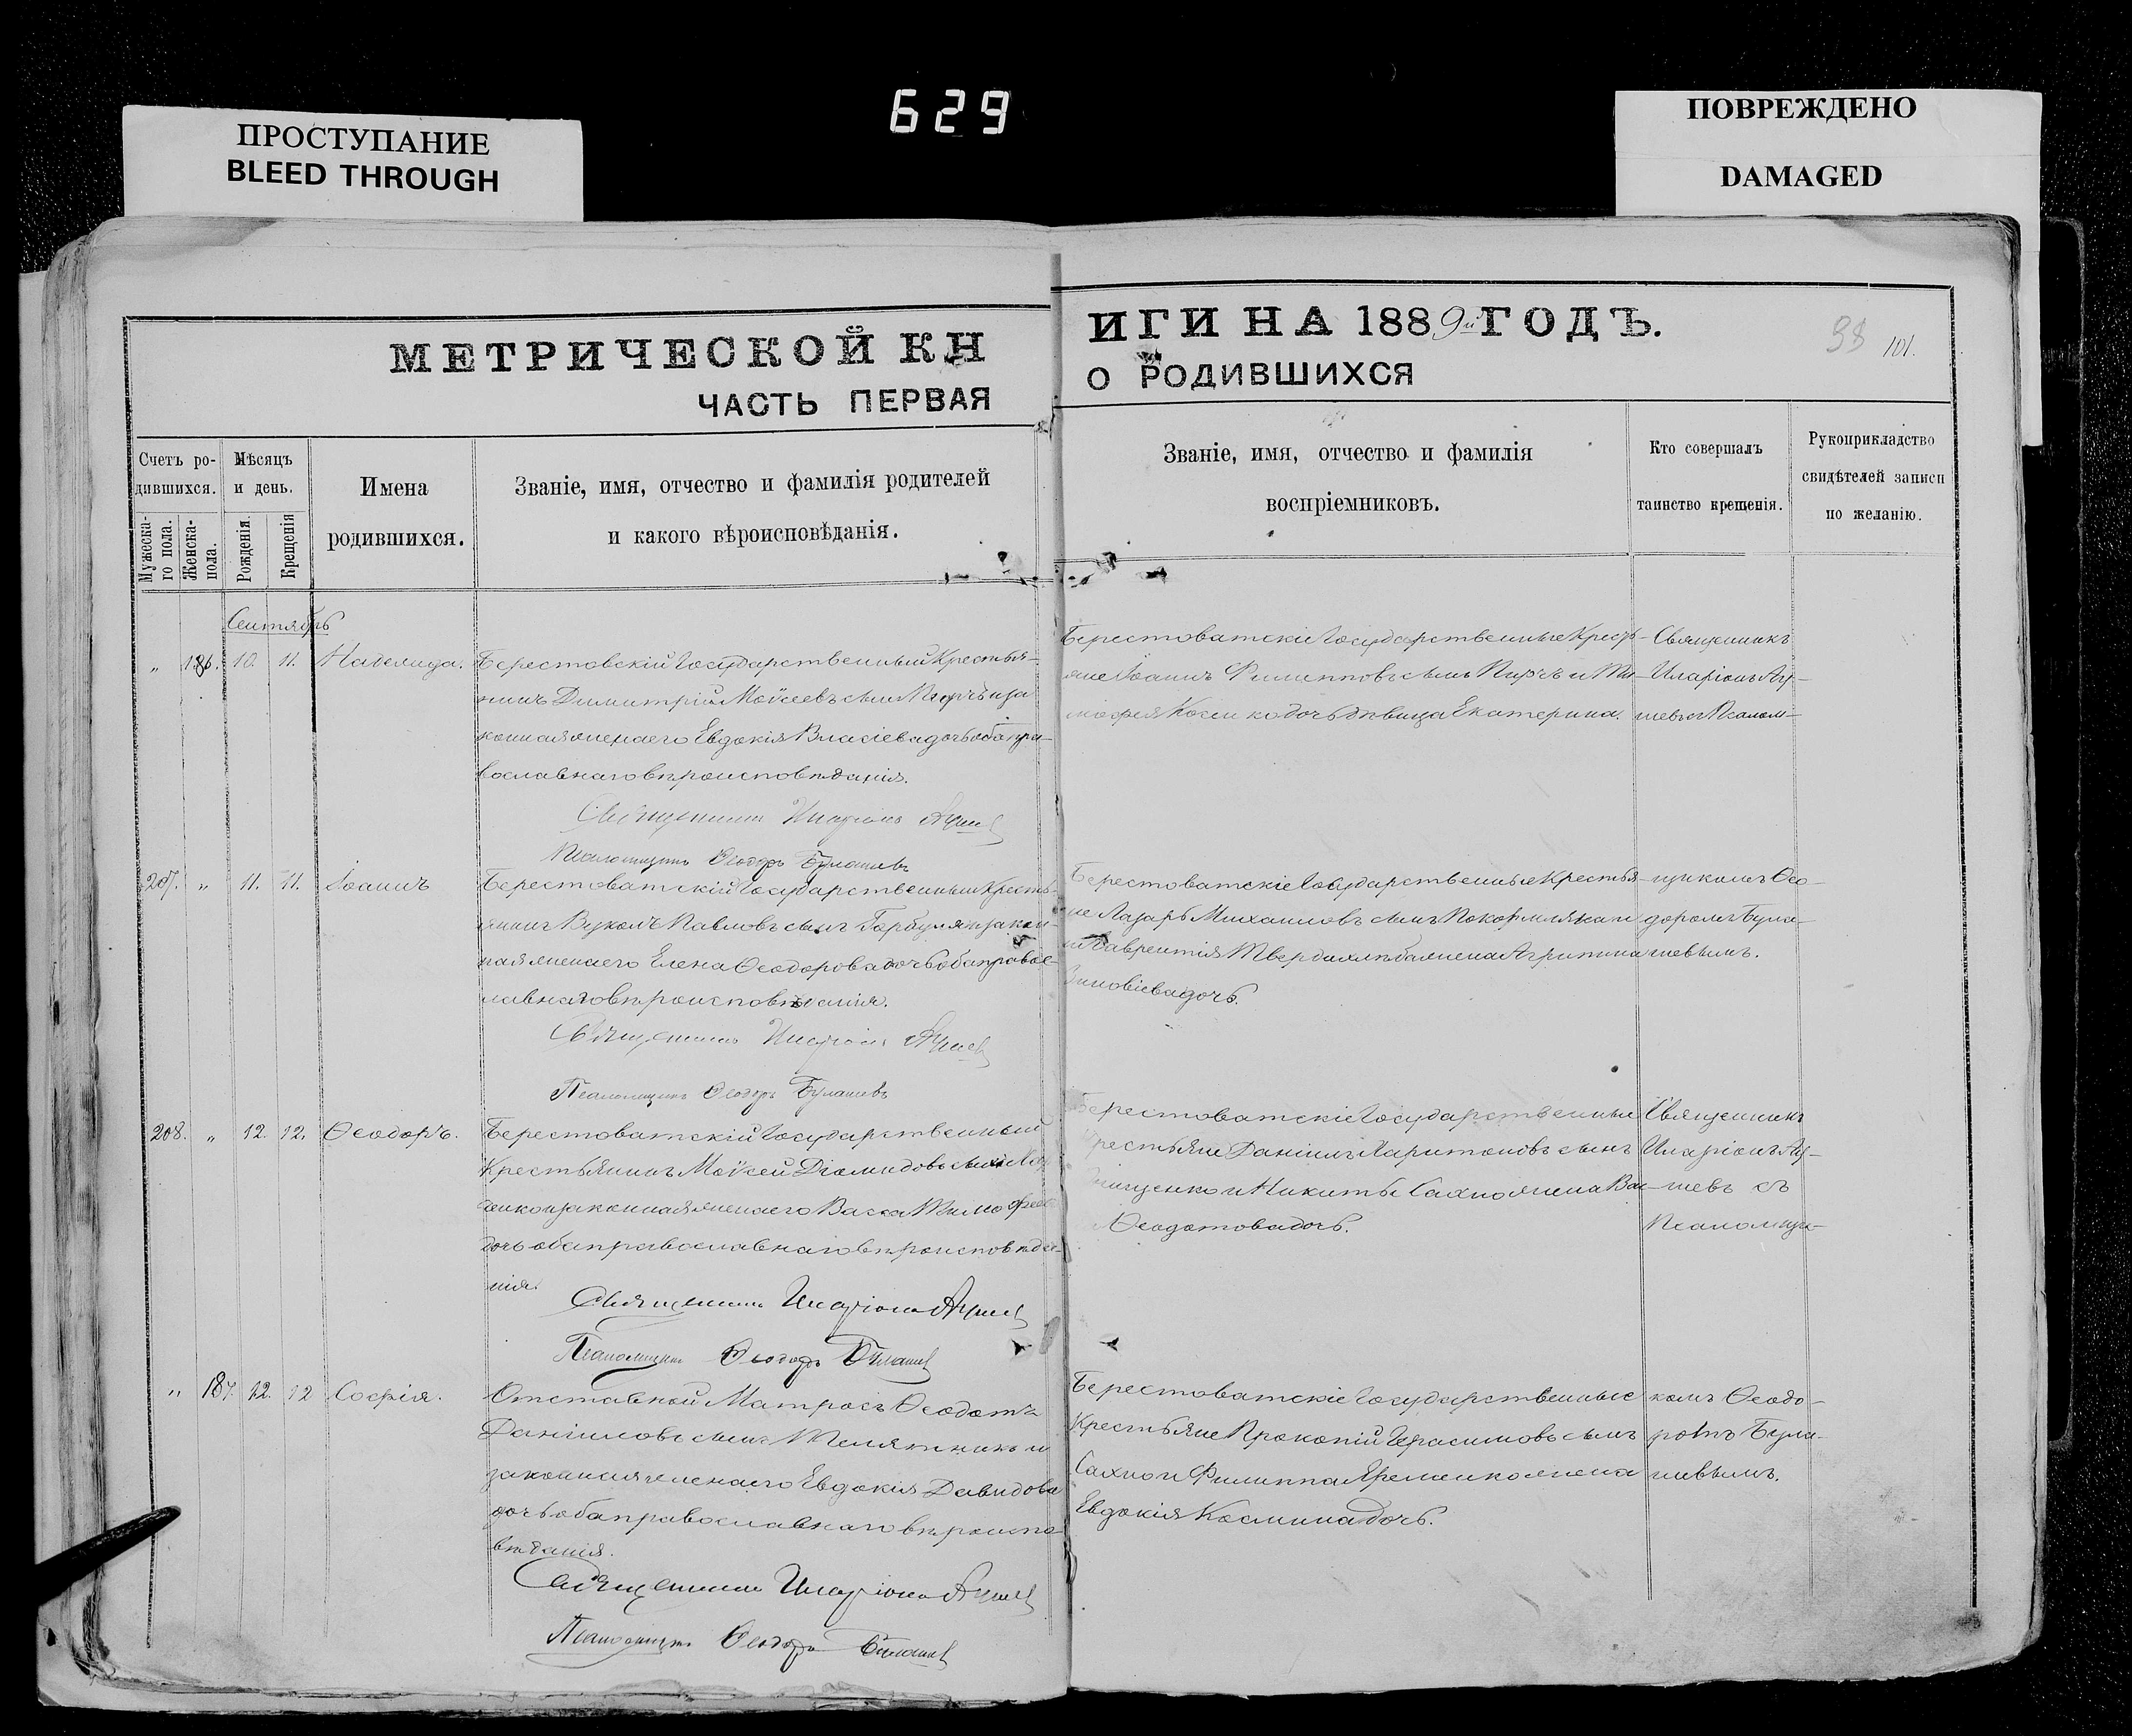 629
ПРОСТУПАНИЕ
BLEED THROUGH
ПОВРЕЖДЕНО
DAMAGED
МЕТРИЧЕСКОЙ КН
ЧАСТЬ ПЕРВАЯ
ИГИ НА 1889й ГОДЪ.
О РОДИВШИХСЯ
101.
Счетъ ро-
дившихся.
Мужеска-
го пола.
Женска-
пола.
Мѣсяцъ
и день.
Рожденія.
Крещенія
Имена
родившихся.
Званіе, имя, отчество и фамилія родителей
и какого вѣроисповѣданія.
Званіе, имя, отчество и фамилія
воспріемниковъ.
Кто совершалъ
таинство крещенія.
Рукоприкладство
свидѣтелей записи
по желанію.
Сентябрь
„ 186. 10. 11.
Берестовскій Государственный Крестья-
нинъ Димитрій Моѵсеевъ сынъ и за
конная жена его Евдокія Власіева дочь оба пра-
вославнаго вѣроисповѣданія.
Священникъ Иларіонъ
Псаломщикъ Ѳеодоръ Булашевъ
Берестоватскіе Государственные Крестъ-
яне Іоаннъ Филипповъ сынъ и Ти-
моѳея дочь дѣвица Екатерина.
Священникъ
Иларіонъ
шевъ съ Псалом-
207. „ 11. 11. Іоаннъ
Берестоватскій Государственный Кресть-
янинъ Вуколъ Павловъ сынъ и закон-
ная жена его Елена Ѳеодорова дочь оба правос-
лавнаго вѣроисповѣданія.
Священникъ Иларіонъ
Псаломщикъ Ѳеодоръ Булашевъ
Берестоватскіе Государственные Крестья-
не Лазарь Михаиловъ сынъ и
Лаврентія Твердохлѣба жена Агрипина
Зиновіева дочь.
щикомъ Ѳео-
доромъ Була-
шевымъ.
208. „ 12. 12. Ѳеодоръ.
Берестоватскій Государственный
Крестьянинъ Моѵсей Діомидовъ сынъ
енко и законная жена его Васса Тимоѳеева
дочь оба православнаго вѣроисповѣда-
нія.
Священникъ Иларіонъ
Псаломщикъ Ѳеодоръ Булашевъ
Берестоватскіе Государственные
Крестьяне Даніилъ Харитоновъ сынъ
и Никиты Сахно жена
Ѳеодотова дочь.
Священникъ
Иларіонъ
шевъ съ
Псаломщи-
„ 187. 12. 12 Софія.
Отставной Матросъ Ѳеодотъ
Даніиловъ сынъ Телятникъ и
законная жена его Евдокія Давидова
дочь оба православнаго вѣроиспо-
вѣданія.
Священникъ Иларіонъ
Псаломщикъ Ѳеодоръ Булашевъ
Берестоватскіе Государственные
Крестьяне Прокопій Герасимовъ сынъ
Сахно и Филиппа Яременко жена
Евдокія Космина дочь.
комъ Ѳеодо-
ромъ Була-
шевымъ.